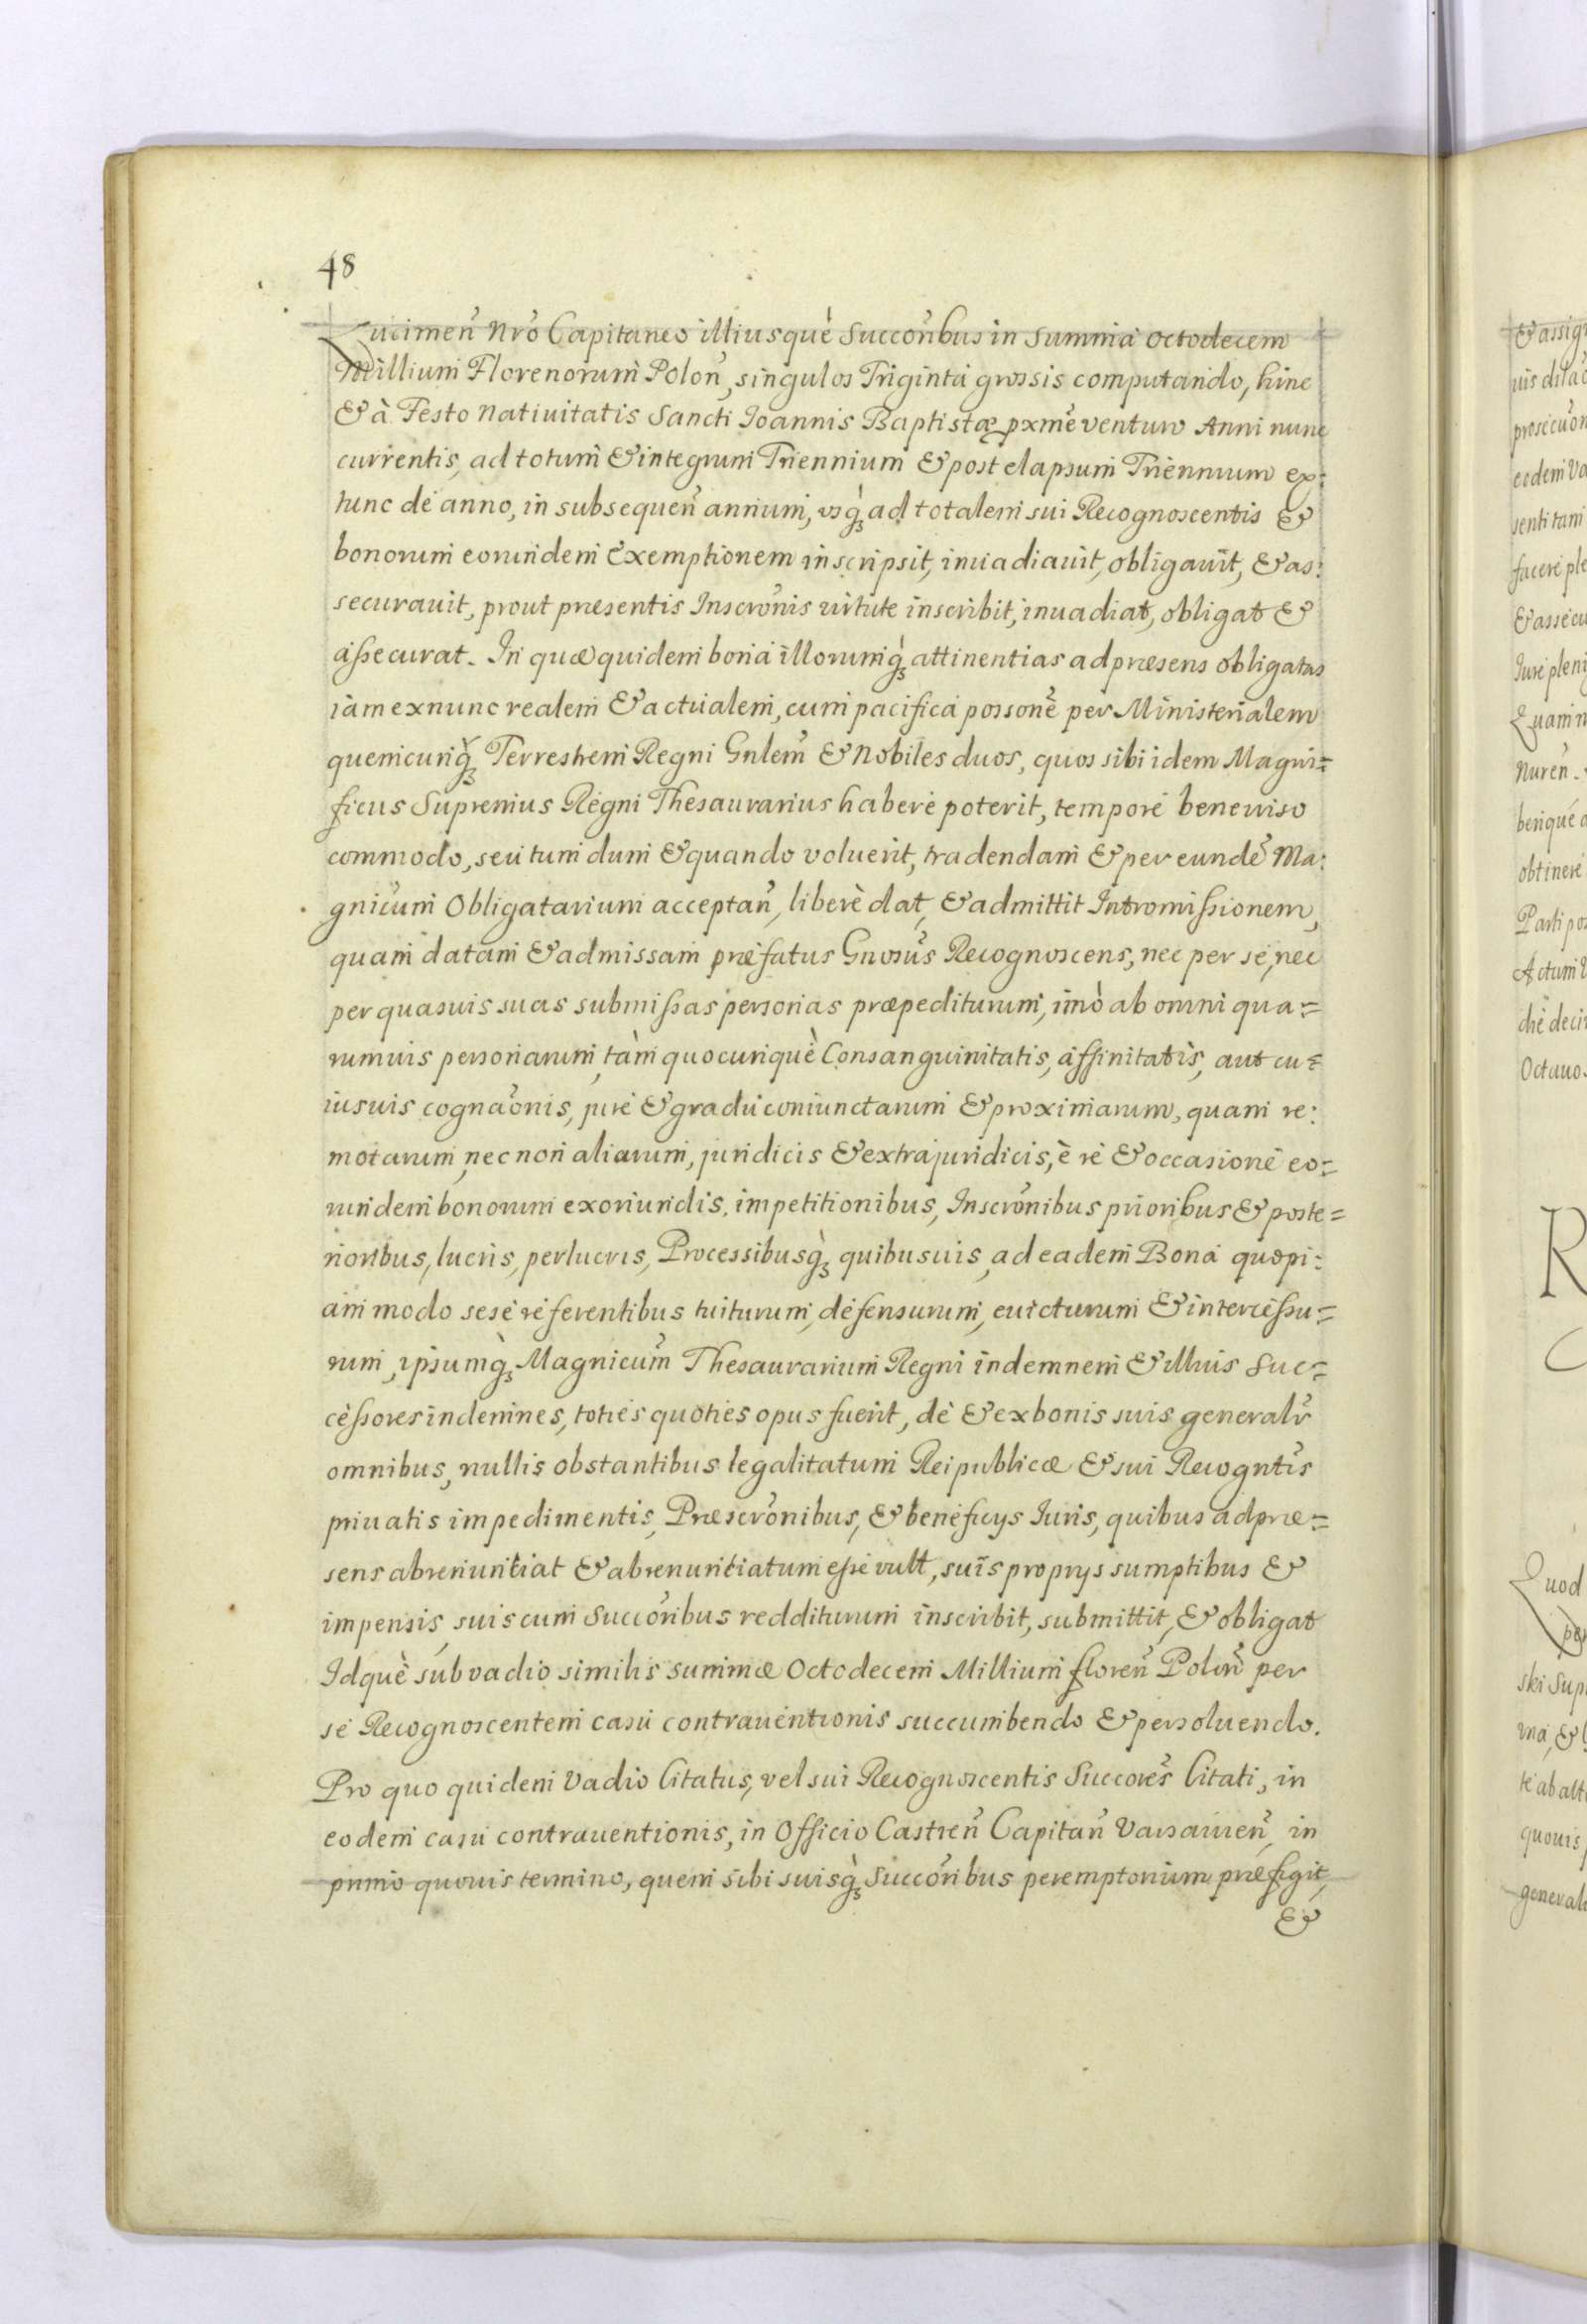 48
Zucimeñ Nrõ Capitaneo illiusquè Succoñbus in Summa Octodecem
Millium Florenorum Poloñ, singulos Triginta grossis computando, hinc
& à Festo Natiuitatis Sancti Joannis Baptistæ pxmè venturo Anni nunc
currentis, ad totum & integrum Triennium & post elapsum Triennium ex:
tunc de anno, in subsequeñ annum, vsq̀₃ ad totalem sui Recognoscentis &
bonorum eorundem Exemptionem inscripsit, inuadiauit, obligauit, & as:
securauit, prout præsentis Inscrõnis virtute inscribit, inuadiat, obligat &
aßecurat. In quæ quidem bona illorumq̀₃ attinentias ad præsens obligatas
iam exnunc realem & actualem, cum pacifica possonẽ per Ministerialem
quemcunq̀₃ Terrestrem Regni Gnlem̃ & Nobiles duos, quos sibi idem Magni=
ficus Supremus Regni Thesaurarius habere poterit, tempore beneuiso
commodo, seu tum dum & quando voluerit, tradendam & per eundẽ Ma:
gnicũm Obligatarium acceptañ, liberè dat, & admittit Intromißionem,
quam datam & admissam præfatus Gnosũs Recognoscens, nec per se, nec
per quasuis suas submißas personas præpediturum, imò ab omni qua=
rumuis personarum, tàm quocunquè Consanguinitatis, affinitatis, aut cu=
iusuis cognaõnis, jure & gradu coniunctarum & proximarum, quam re:
motarum, nec non aliarum, juridicis & extrajuridicis, è re & occasione eo=
rundem bonorum exoriundis, impetitionibus, Inscrõnibus prioribus & poste=
rioribus, lucris, perlucris, Processibusq̀₃ quibusuis, ad eadem Bona quopi:
am modo sese referentibus tuiturum, defensurum, euicturum & interceßu=
rum, ipsumq̀₃ Magnicum̃ Thesaurarium Regni indemnem & illius Suc=
ceßores indemnes, toties quoties opus fuerit, de & ex bonis suis generalr̃
omnibus, nullis obstantibus legalitatum Reipublicæ & sui Recogntĩs
priuatis impedimentis, Præscrõnibus, & beneficys Iuris, quibus ad præ=
sens abrenuntiat & abrenuntiatum eße vult, suis proprys sumptibus &
impensis, suis cum Succõribus redditurum inscribit, submittit, & obligat
Idquè sub vadio similis summæ Octodecem Millium floreñ Poloñ per
se Recognoscentem casu contrauentionis succumbendo & persoluendo.
Pro quo quidem Vadio Citatus, vel sui Recognoscentis Succorẽs Citati, in
eodem casu contrauentionis, in Officio Castreñ Capitañ Varsauieñ, in
primo quouis termino, quem sibi suisq̀₃ Succõribus peremptorium præfigit,
&